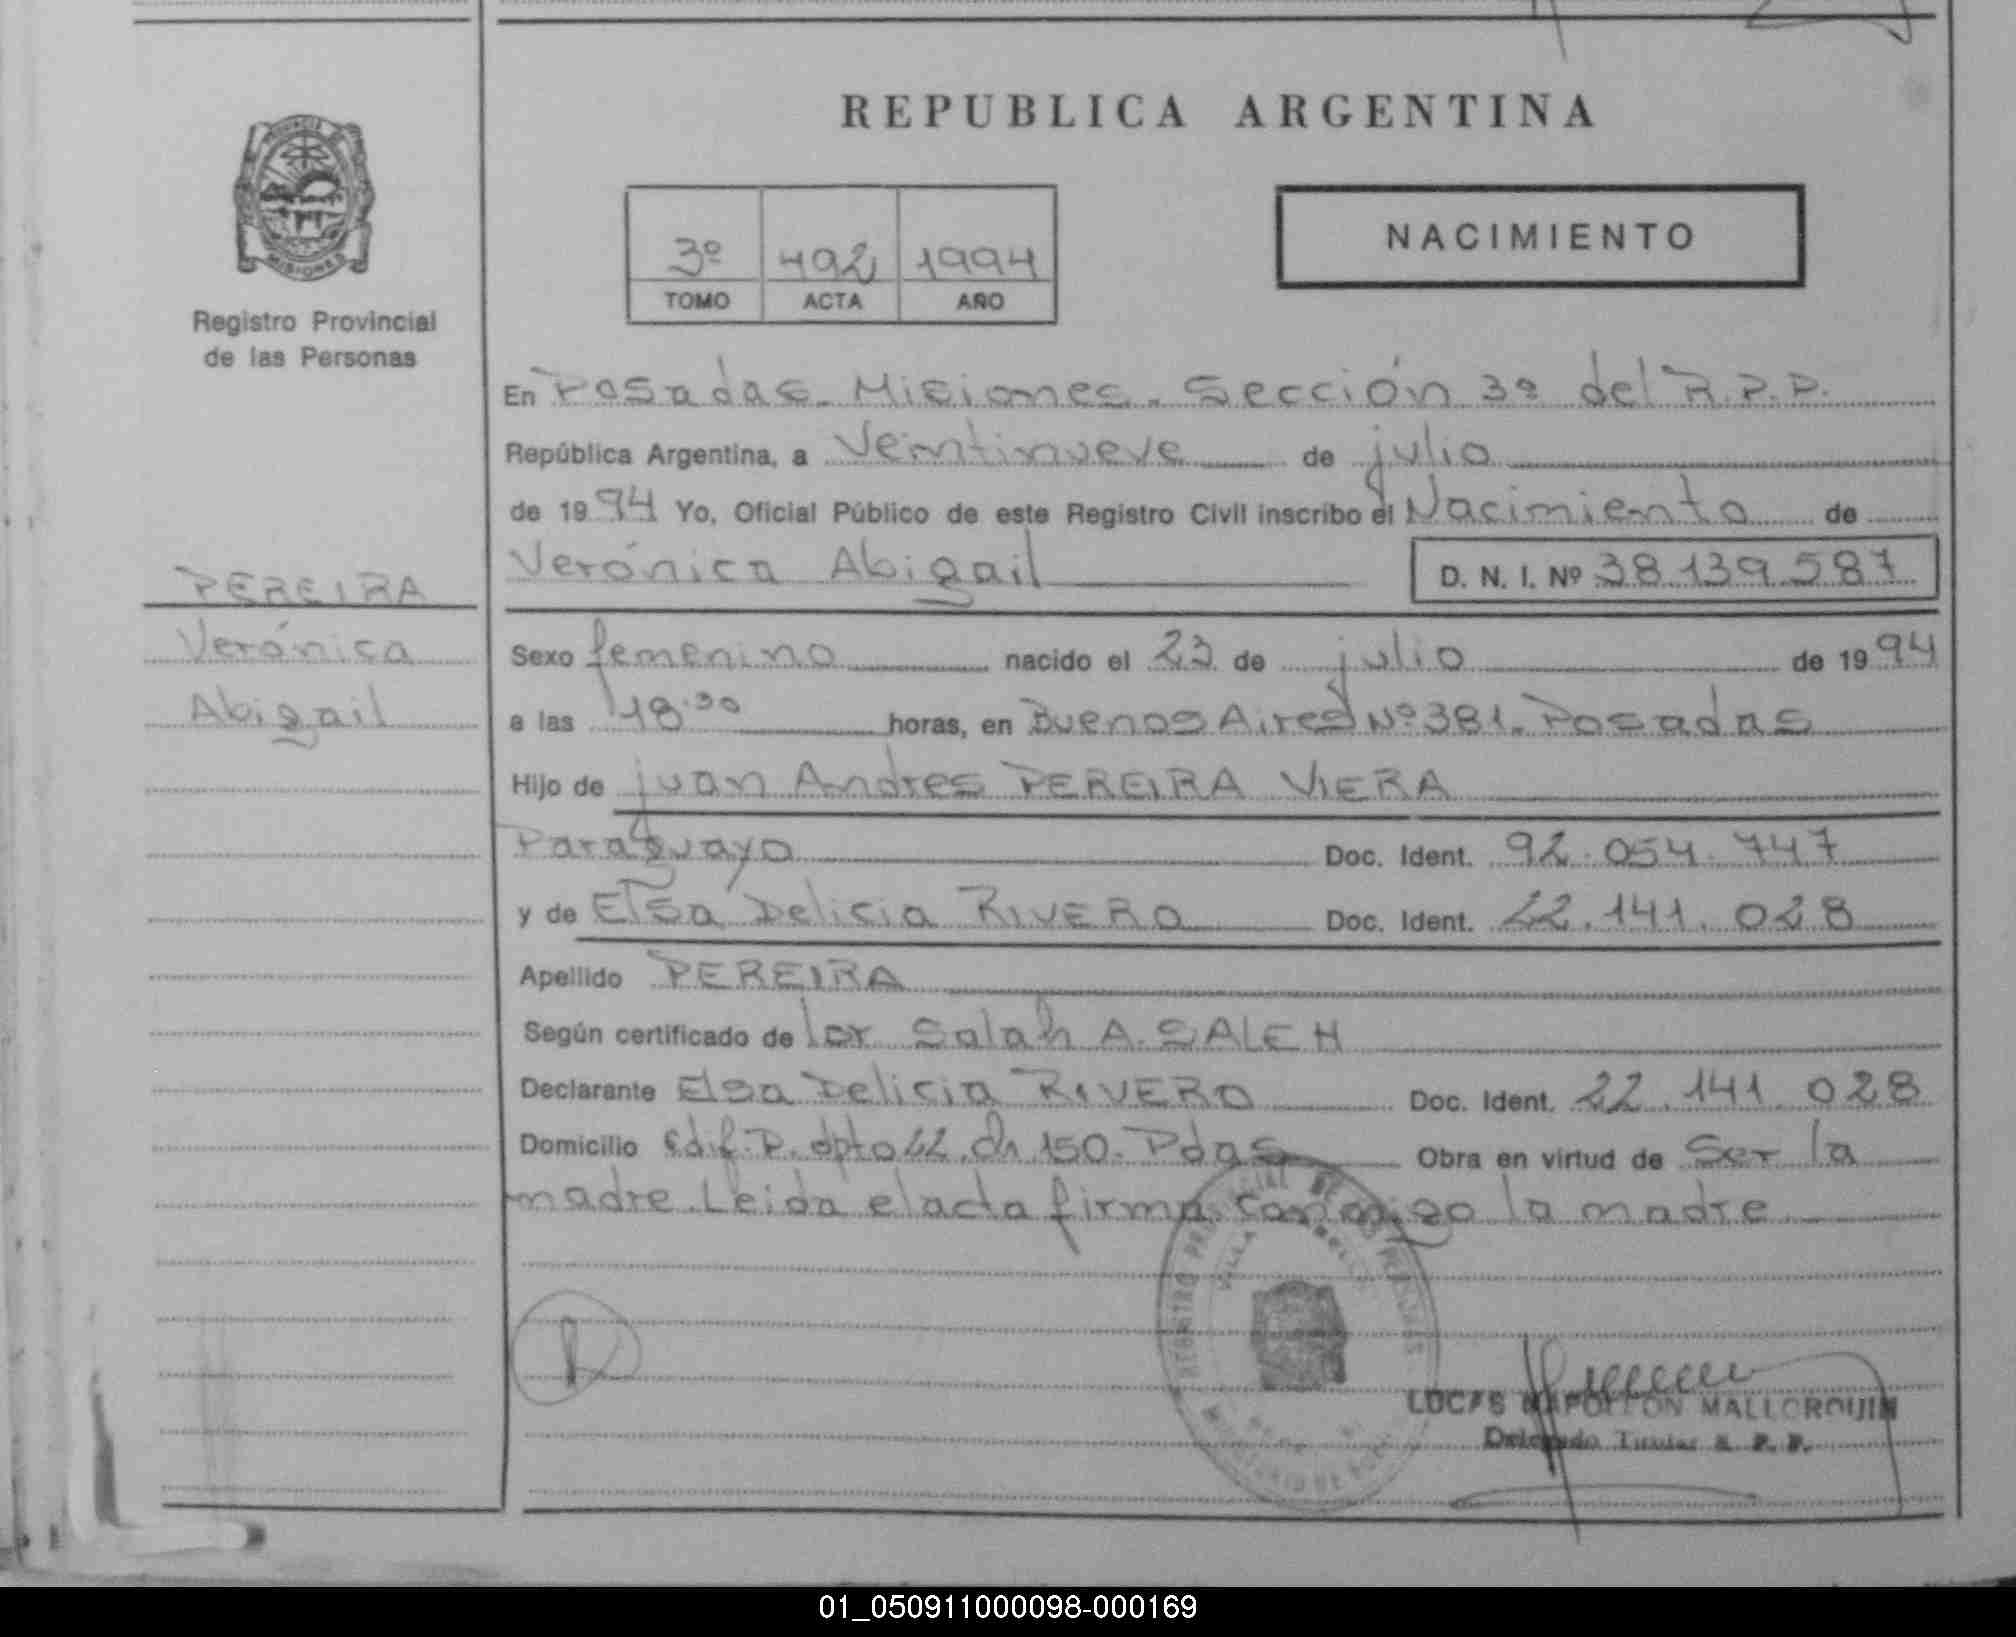 REPUBLICA ARGENTINA
MISIONES
Registro Provincial
de las Personas
3º 492 1994
TOMO ACTA AÑO
NACIMIENTO
En Posadas. Misiones. Sección 3º del R.P.P.
República Argentina, a Veintinueve de julio
de 1994 Yo, Oficial Público de este Registro Civil inscribo el Nacimiento de
Verónica Abigail D. N. I. Nº 38.139.587
PEREIRA
Verónica
Abigail
Sexo femenino nacido el 23 de julio de 1994
a las 18:30 horas, en Buenos Aires Nº 381. Posadas
Hijo de Juan Andres PEREIRA VIERA
Paraguayo Doc. Ident. 92.054.747
y de Elsa Delicia RIVERO Doc. Ident. 22.141.028
Apellido PEREIRA
Según certificado de Salah A. SALEH
Declarante Elsa Delicia RIVERO Doc. Ident. 22.141.028
Domicilio Edif. P. dpto 22. ch 150. Pdas Obra en virtud de Ser la
madre. Leida el acta firma conmigo la madre
REGISTRO PROVINCIAL DE LAS PERSONAS
VILLA
LUCAS NAPOLEON MALLORQUIN
Delegado Titular R. P. P.
01_050911000098-000169